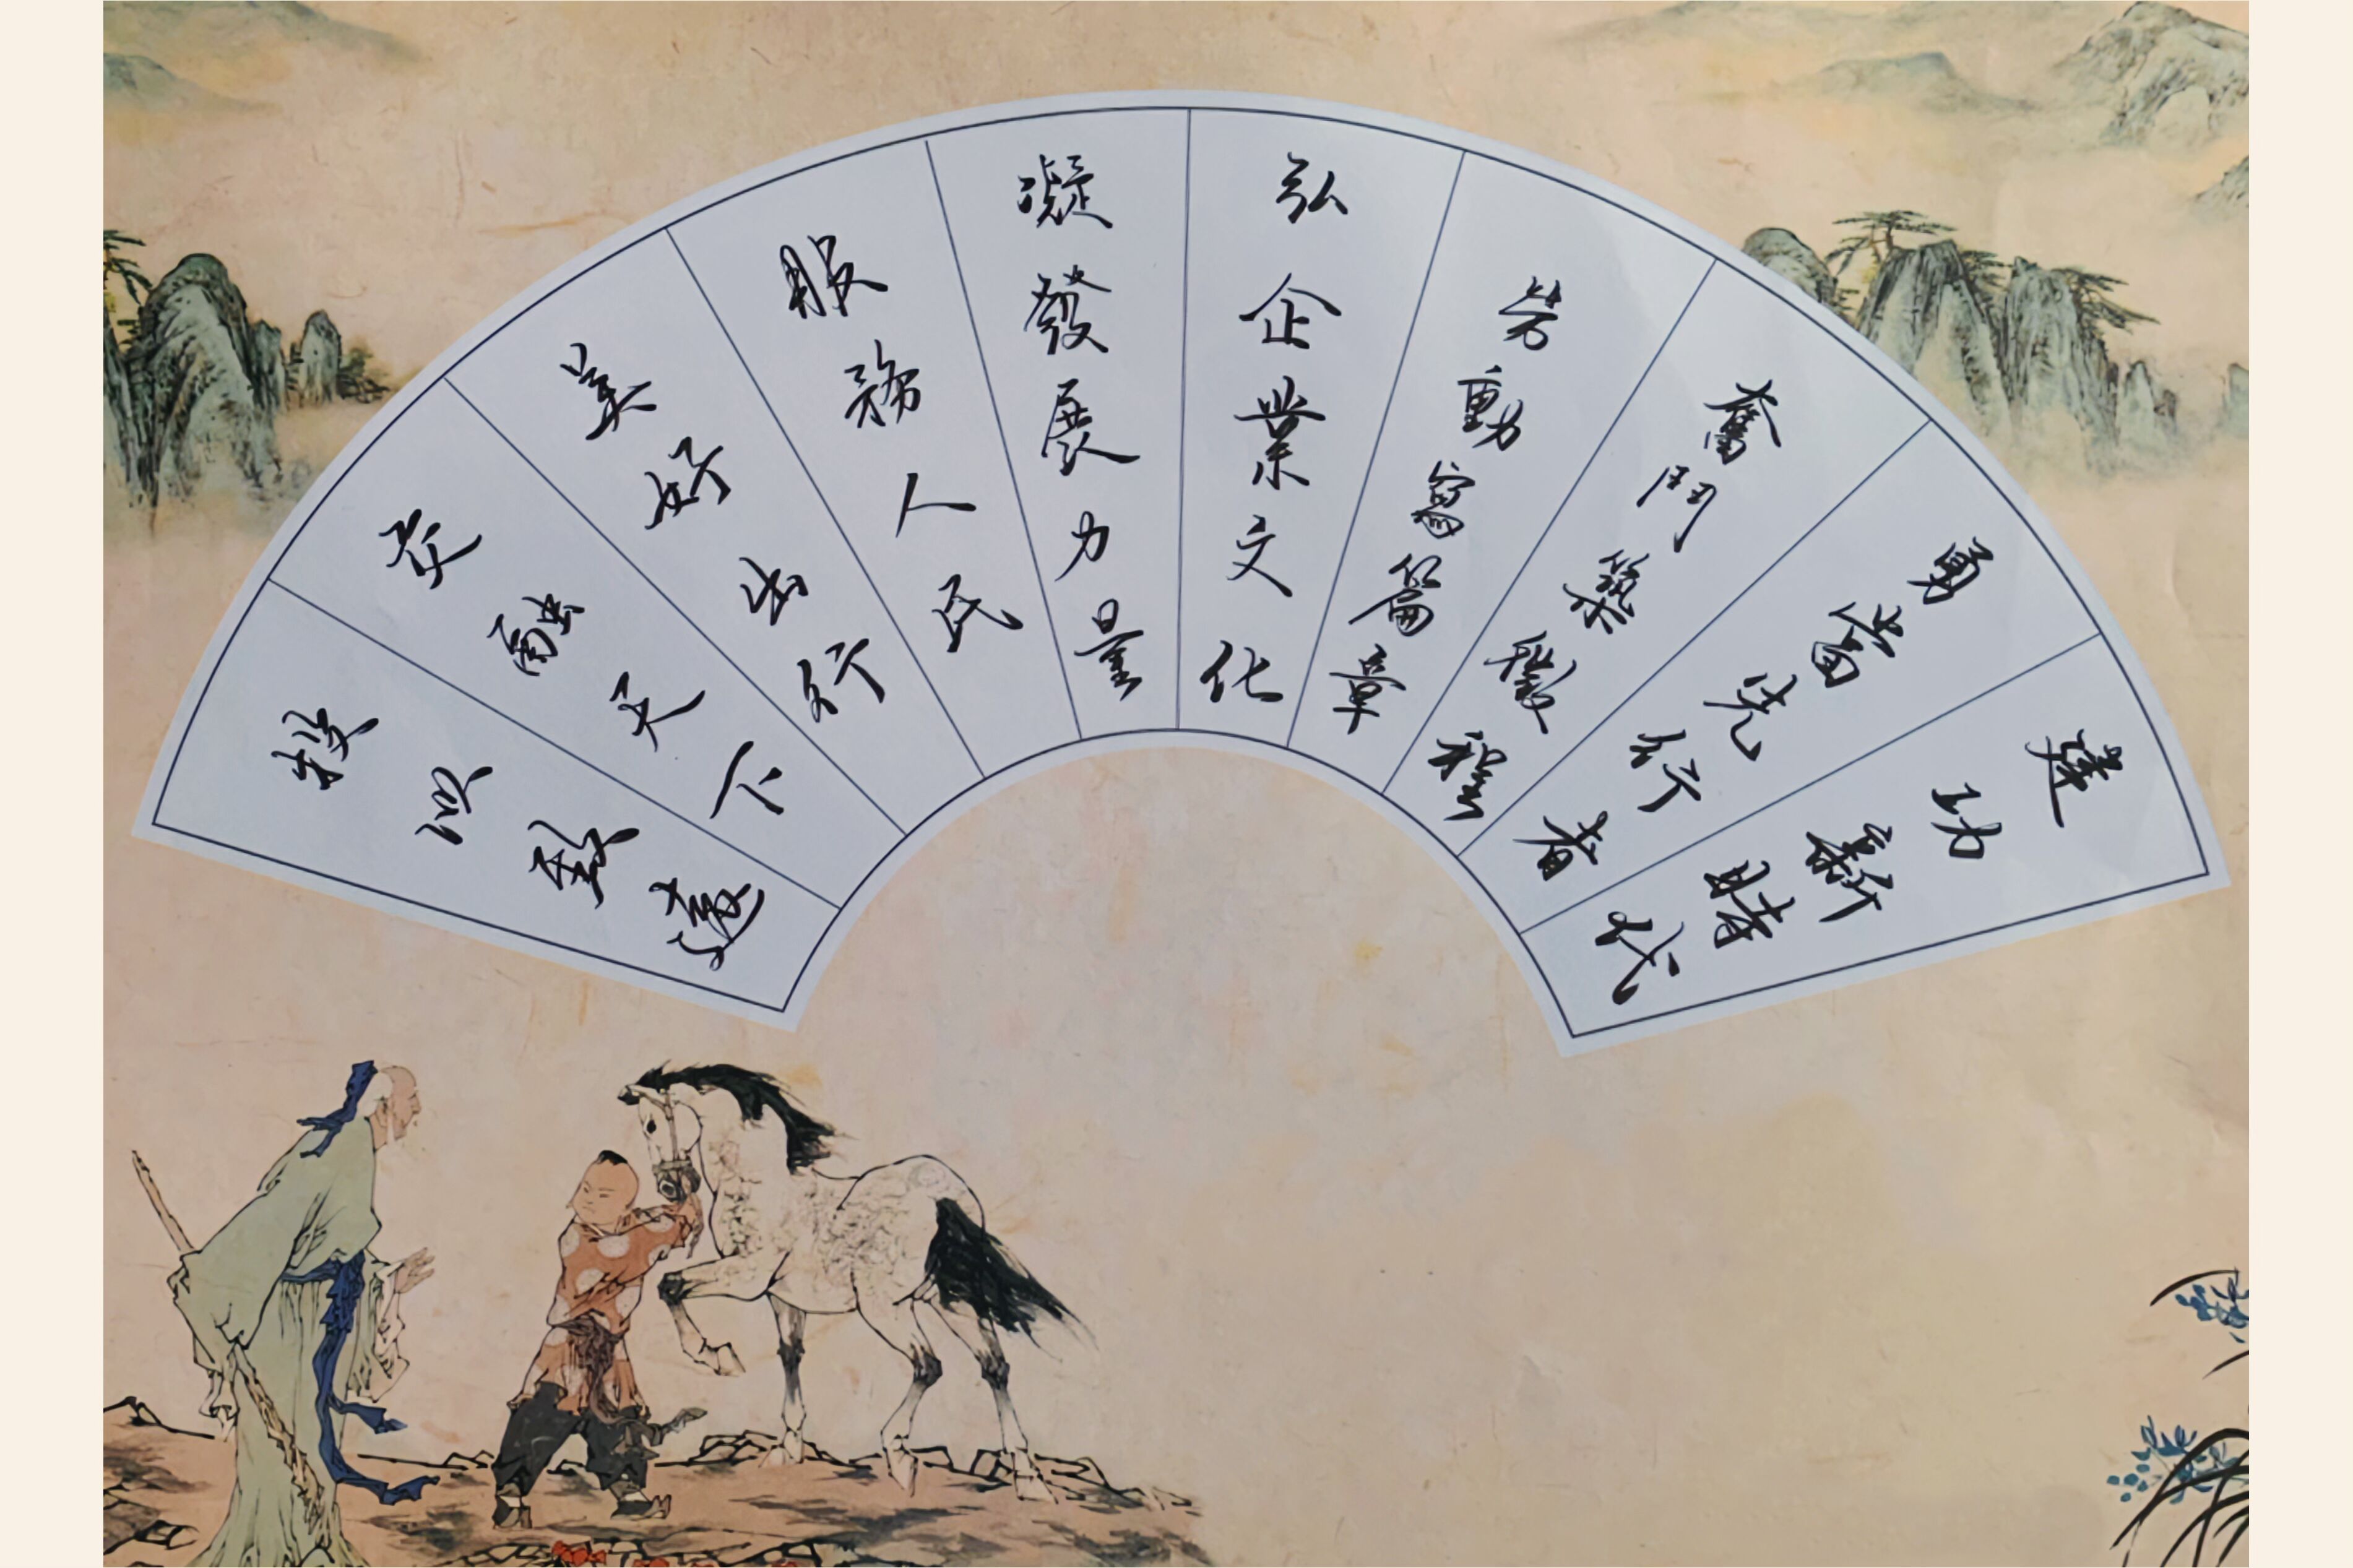 建功新時代
勇當先行者
奮鬥築徵程
勞動寫篇章
弘企業文化
凝發展力量
服務人民
美好出行
交融天下
投以致遠